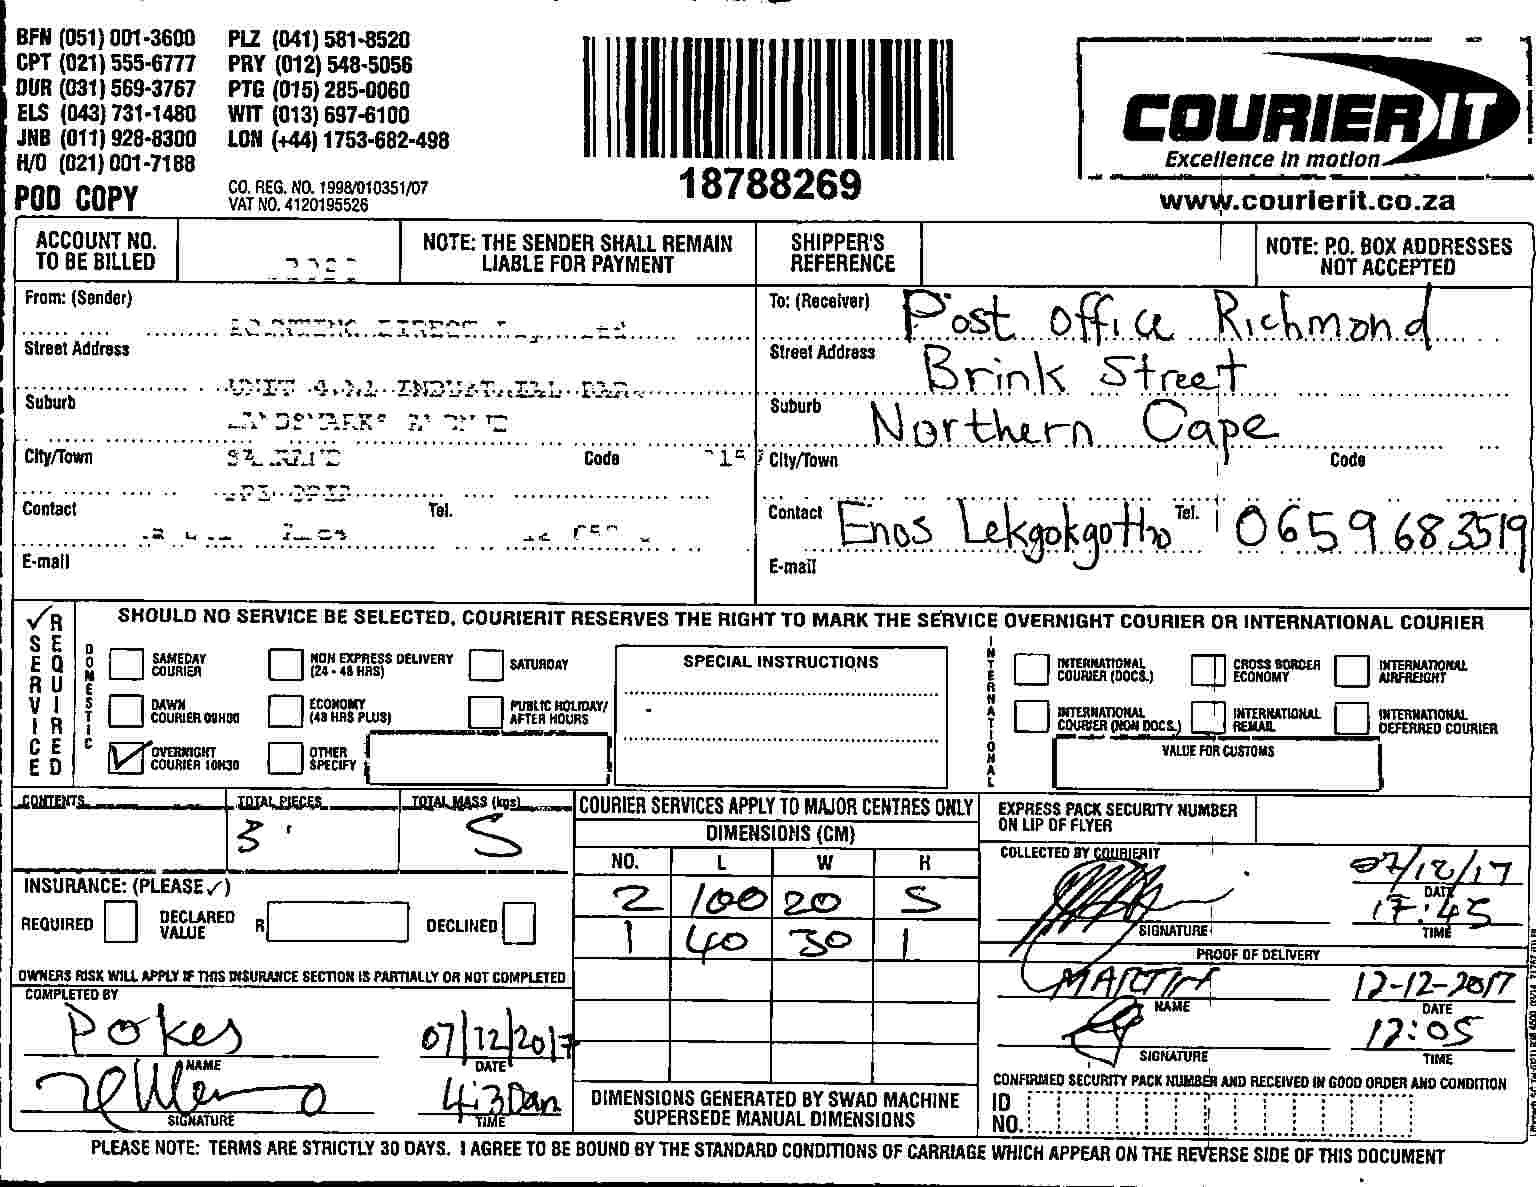 BFN (051) 001-3600 PLZ (041) 581-8520
CPT (021) 555-6777 PRY (012) 548-5056
DUR (031) 569-3767 PTG (015) 285-0060
ELS (043) 731-1480 WIT (013) 697-6100
JNB (011) 928-8300 LON (+44) 1753-682-498
H/O (021) 001-7188
POD COPY
CO. REG. NO. 1998/010351/07
VAT NO. 4120195526
18788269
COURIER IT
Excellence in motion
www.courierit.co.za
ACCOUNT NO.
TO BE BILLED
NOTE: THE SENDER SHALL REMAIN
LIABLE FOR PAYMENT
SHIPPER'S
REFERENCE
NOTE: P.O. BOX ADDRESSES
NOT ACCEPTED
From: (Sender)
Street Address
Suburb
City/Town Code
Contact Tel.
E-mail
To: (Receiver) Post Office Richmond
Street Address Brink Street
Suburb Northern Cape
City/Town Code
Contact Enos Lekgokgotho Tel. 0659683519
E-mail
SERVICE REQUIRED
SHOULD NO SERVICE BE SELECTED, COURIERIT RESERVES THE RIGHT TO MARK THE SERVICE OVERNIGHT COURIER OR INTERNATIONAL COURIER
DOMESTIC
SAMEDAY
COURIER
NON EXPRESS DELIVERY
(24 - 48 HRS)
SATURDAY
DAWN
COURIER 09H00
ECONOMY
(48 HRS PLUS)
PUBLIC HOLIDAY/
AFTER HOURS
OVERNIGHT
COURIER 10H30
OTHER
SPECIFY
SPECIAL INSTRUCTIONS
INTERNATIONAL
INTERNATIONAL
COURIER (DOCS.)
CROSS BORDER
ECONOMY
INTERNATIONAL
AIRFREIGHT
INTERNATIONAL
COURIER (NON DOCS.)
INTERNATIONAL
REMAIL
INTERNATIONAL
DEFERRED COURIER
VALUE FOR CUSTOMS
CONTENTS TOTAL PIECES TOTAL MASS (kgs)
3 5
INSURANCE: (PLEASE ✓)
REQUIRED DECLARED
VALUE R DECLINED
OWNERS RISK WILL APPLY IF THIS INSURANCE SECTION IS PARTIALLY OR NOT COMPLETED
COMPLETED BY
Pokes 07/12/2017
NAME DATE
4:30am
SIGNATURE TIME
COURIER SERVICES APPLY TO MAJOR CENTRES ONLY
DIMENSIONS (CM)
NO. L W H
2 100 20 5
1 40 30 1
DIMENSIONS GENERATED BY SWAD MACHINE
SUPERSEDE MANUAL DIMENSIONS
EXPRESS PACK SECURITY NUMBER
ON LIP OF FLYER
COLLECTED BY COURIERIT
07/12/17
DATE
17:45
SIGNATURE TIME
PROOF OF DELIVERY
MARTIN 12-12-2017
NAME DATE
12:05
SIGNATURE TIME
CONFIRMED SECURITY PACK NUMBER AND RECEIVED IN GOOD ORDER AND CONDITION
ID
NO.
PLEASE NOTE: TERMS ARE STRICTLY 30 DAYS. I AGREE TO BE BOUND BY THE STANDARD CONDITIONS OF CARRIAGE WHICH APPEAR ON THE REVERSE SIDE OF THIS DOCUMENT